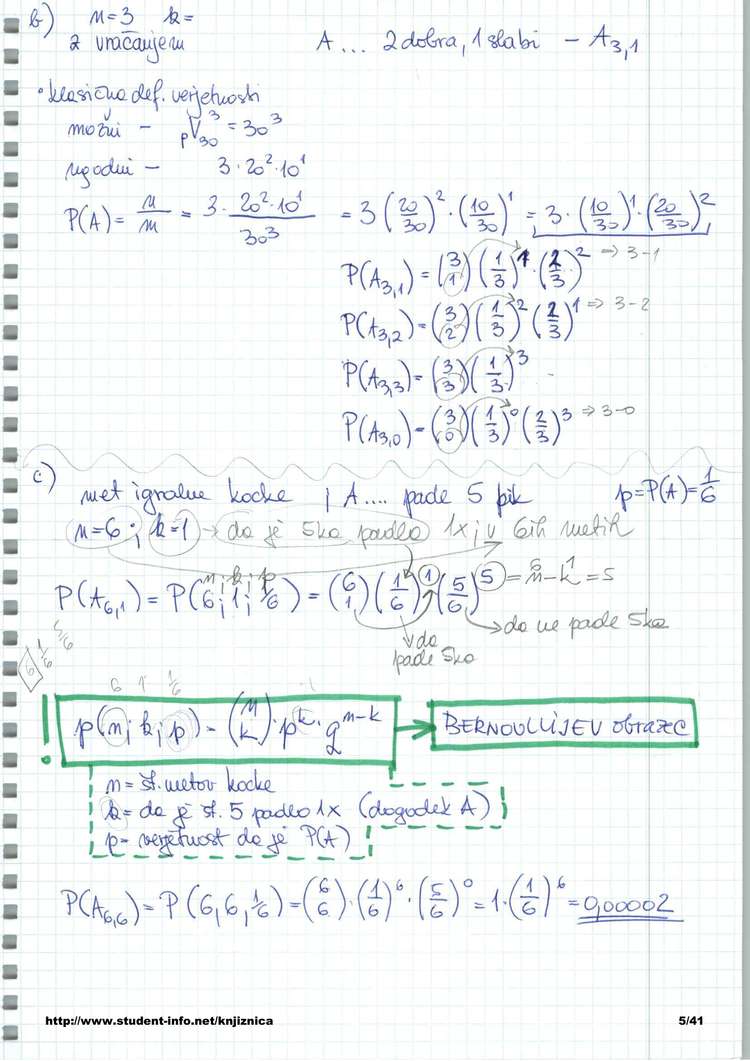 b) n=3 k=
z vračanjem A... 2 dobra, 1 slabi – A₃,₁
• klasična def. verjetnosti
možni – pV₃₀³ = 30³
ugodni – 3·20²·10¹
P(A) = n/m = 3·20²·10¹/30³ = 3(20/30)²·(10/30)¹ = 3·(10/30)¹·(20/30)²
P(A₃,₁) = (3 1)(1/3)¹·(2/3)² ⇒ 3-1
P(A₃,₂) = (3 2)(1/3)²(2/3)¹ ⇒ 3-2
P(A₃,₃) = (3 3)(1/3)³
P(A₃,₀) = (3 0)(1/3)⁰(2/3)³ ⇒ 3-0
c) met igralne kocke ; A.... pade 5 pik p=P(A)=1/6
n=6; k=1 → da je 5ka padla 1x; v 6ih metih
n; k; p
P(A₆,₁) = P(6; 1; 1/6) = (6 1)(1/6)¹(5/6)⁵ = n-k = 5
6 1
↓ da pade 5ka → da ne pade 5ka
6 1/6 5/6
6 1 1/6
! p(n; k; p) = (n k)·pᵏ·qⁿ⁻ᵏ → BERNOULLIJEV obrazec
n = št. metov kocke
k = da je št. 5 padlo 1x (dogodek A)
p = verjetnost da je P(A)
P(A₆,₆) = P(6, 6, 1/6) = (6 6)·(1/6)⁶·(5/6)⁰ = 1·(1/6)⁶ = 0,00002
http://www.student-info.net/knjiznica 5/41